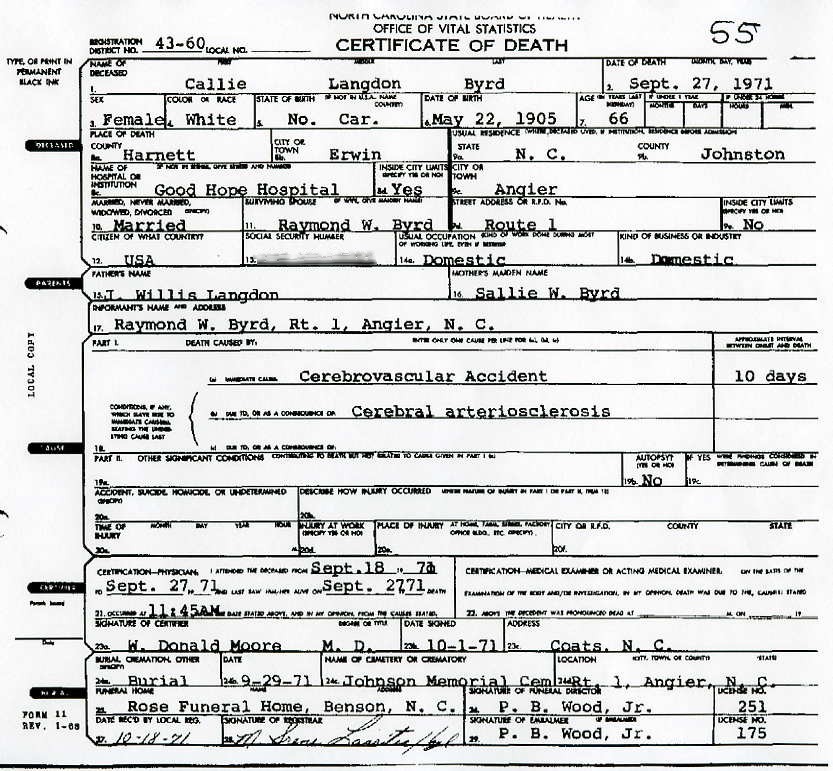 NORTH CAROLINA STATE BOARD OF HEALTH
OFFICE OF VITAL STATISTICS
CERTIFICATE OF DEATH
55
REGISTRATION DISTRICT NO. 43-60 LOCAL NO.
TYPE, OR PRINT IN PERMANENT BLACK INK
NAME OF DECEASED FIRST MIDDLE LAST DATE OF DEATH (MONTH, DAY, YEAR)
1. Callie Langdon Byrd 2. Sept. 27, 1971
SEX COLOR OR RACE STATE OF BIRTH (IF NOT IN U.S.A. NAME COUNTRY) DATE OF BIRTH AGE (IN YEARS LAST BIRTHDAY) IF UNDER 1 YEAR IF UNDER 24 HOURS
MONTHS DAYS HOURS MIN.
3. Female 4. White 5. No. Car. 6. May 22, 1905 7. 66
DECEASED
PLACE OF DEATH USUAL RESIDENCE (WHERE DECEASED LIVED, IF INSTITUTION, RESIDENCE BEFORE ADMISSION)
COUNTY CITY OR TOWN STATE COUNTY
8a. Harnett 8b. Erwin 9a. N. C. 9b. Johnston
NAME OF HOSPITAL OR INSTITUTION (IF NOT IN EITHER, GIVE STREET AND NUMBER) INSIDE CITY LIMITS (SPECIFY YES OR NO) CITY OR TOWN
8c. Good Hope Hospital 8d. Yes 9c. Angier
MARRIED, NEVER MARRIED, WIDOWED, DIVORCED (SPECIFY) SURVIVING SPOUSE (IF WIFE, GIVE MAIDEN NAME) STREET ADDRESS OR R.F.D. No. INSIDE CITY LIMITS (SPECIFY YES OR NO)
10. Married 11. Raymond W. Byrd 9d. Route 1 9e. No
CITIZEN OF WHAT COUNTRY? SOCIAL SECURITY NUMBER USUAL OCCUPATION (KIND OF WORK DONE DURING MOST OF WORKING LIFE, EVEN IF RETIRED) KIND OF BUSINESS OR INDUSTRY
12. USA 13. 14a. Domestic 14b. Domestic
PARENTS
FATHER'S NAME MOTHER'S MAIDEN NAME
15. J. Willis Langdon 16. Sallie W. Byrd
INFORMANT'S NAME AND ADDRESS
17. Raymond W. Byrd, Rt. 1, Angier, N. C.
LOCAL COPY
PART I. DEATH CAUSED BY: ENTER ONLY ONE CAUSE PER LINE FOR (a), (b), (c) APPROXIMATE INTERVAL BETWEEN ONSET AND DEATH
(a) IMMEDIATE CAUSE Cerebrovascular Accident 10 days
CONDITIONS, IF ANY, WHICH GAVE RISE TO IMMEDIATE CAUSE(a), STATING THE UNDERLYING CAUSE LAST
(b) DUE TO, OR AS A CONSEQUENCE OF: Cerebral arteriosclerosis
18. (c) DUE TO, OR AS A CONSEQUENCE OF:
CAUSE
PART II. OTHER SIGNIFICANT CONDITIONS CONTRIBUTING TO DEATH BUT NOT RELATED TO CAUSE GIVEN IN PART I (a) AUTOPSY? (YES OR NO) IF YES WERE FINDINGS CONSIDERED IN DETERMINING CAUSE OF DEATH
19a. 19b. No 19c.
ACCIDENT, SUICIDE, HOMICIDE, OR UNDETERMINED (SPECIFY) DESCRIBE HOW INJURY OCCURRED (ENTER NATURE OF INJURY IN PART I OR PART II, ITEM 18)
20a. 20b.
TIME OF INJURY MONTH DAY YEAR HOUR INJURY AT WORK (SPECIFY YES OR NO) PLACE OF INJURY AT HOME, FARM, STREET, FACTORY OFFICE BLDG., ETC. (SPECIFY) CITY OR R.F.D. COUNTY STATE
20c. M. 20d. 20e. 20f.
CERTIFICATION—PHYSICIAN: I ATTENDED THE DECEASED FROM Sept.18 19 71 CERTIFICATION—MEDICAL EXAMINER OR ACTING MEDICAL EXAMINER. ON THE BASIS OF THE
CERTIFIER
TO Sept. 27 19 71 AND LAST SAW HIM/HER ALIVE ON Sept. 27 71 DEATH EXAMINATION OF THE BODY AND/OR INVESTIGATION, IN MY OPINION, DEATH WAS DUE TO THE CAUSE(S) STATED
21. OCCURRED AT 11:45AM THE DATE STATED ABOVE, AND IN MY OPINION, FROM THE CAUSES STATED. 22. ABOVE. THE DECEDENT WAS PRONOUNCED DEAD AT M. ON 19
SIGNATURE OF CERTIFIER DEGREE OR TITLE DATE SIGNED ADDRESS
23a. W. Donald Moore M. D. 23b. 10-1-71 23c. Coats, N. C.
Date
BURIAL, CREMATION, OTHER (SPECIFY) DATE NAME OF CEMETERY OR CREMATORY LOCATION (CITY, TOWN, OR COUNTY) (STATE)
24a. Burial 24b. 9-29-71 24c. Johnson Memorial Cem 24d. Rt. 1, Angier, N. C.
BURIAL
FUNERAL HOME NAME ADDRESS SIGNATURE OF FUNERAL DIRECTOR LICENSE NO.
25. Rose Funeral Home, Benson, N. C. 26. P. B. Wood, Jr. 251
FORM 11
REV. 1-68
DATE REC'D BY LOCAL REG. SIGNATURE OF REGISTRAR SIGNATURE OF EMBALMER IF EMBALMED LICENSE NO.
27. 10-18-71 28. 29. P. B. Wood, Jr. 175